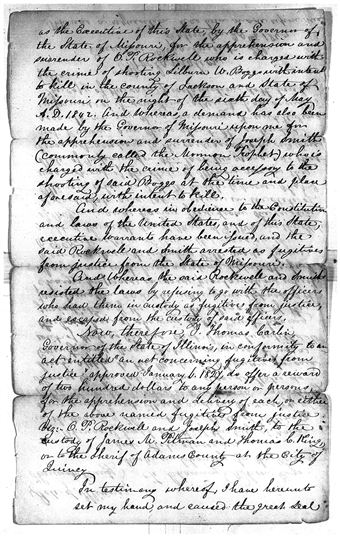 as the Executive of this State, by the Governor of
the State of Missouri, for the apprehension and
surrender of O. P. Rockwell who is charged with
the crime of shooting Lilburn W. Boggs with intent
to kill in the county of Jackson and State of
Missouri, on the night of the sixth day of May
A.D. 1842. And whereas, a demand has also been
made by the Governor of Missouri upon me for
the apprehension and surrender of Joseph Smith
(commonly called the Mormon Prophet) who is
charged with the crime of being accessory to the
shooting of said Boggs at the time and place
aforesaid, with intent to kill.
And whereas in obedience to the Constitution
and laws of the United States, and of this State,
executive warrants have been issued, and the
said Rockwell and Smith arrested as fugitives
from justice from the State of Missouri.
And Whereas, the said Rockwell and Smith
resisted the laws by refusing to go with the officers
who had them in custody as fugitives from justice,
and escaped from the custody of said officers.
Now, therefore, I Thomas Carlin
Governor of the State of Illinois, in conformity to an
act entitled "an act concerning fugitives from
justice" approved January 6, 1827, do offer a reward
of two hundred dollars to any person or persons,
for the apprehension and delivery of each, or either
of the above named fugitives from justice
viz:- O. P. Rockwell and Joseph Smith, to the
custody of James M. Pitman and Thomas C. King,
or to the Sheriff of Adams County at the City of
Quincy
In testimony whereof, I have hereunto
set my hand, and caused the great Seal